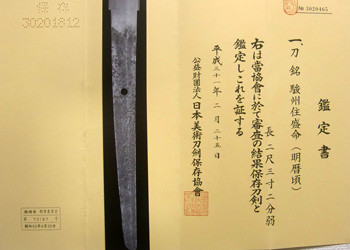 鑑定書
一、刀 銘 駿州住盛命(明暦頃)
長 二尺三寸二分弱
右は當協會に於て審査の結果保存刀剣と
鑑定しこれを証する
平成三十一年 二月 二十五日
公益財団法人 日本美術刀剣保存協會
№ 3020465
保存
30201812